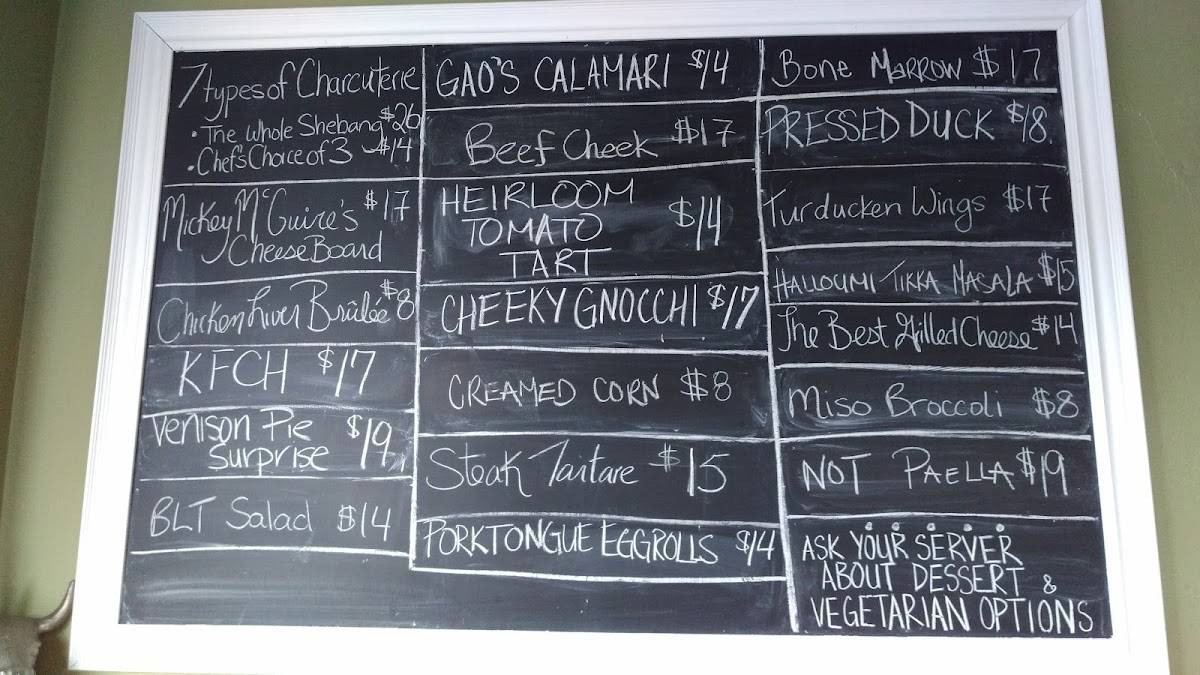 7 types of Charcuterie
• The Whole Shebang $26
• Chef's Choice of 3 $14
Mickey McGuire's $17
Cheese Board
Chicken Liver Brûlée $8
KFCH $17
Venison Pie $19
Surprise
BLT Salad $14
GAO'S CALAMARI $14
Beef Cheek $17
HEIRLOOM
TOMATO $14
TART
CHEEKY GNOCCHI $17
CREAMED CORN $8
Steak Tartare $15
PORKTONGUE EGGROLLS $14
Bone Marrow $17
PRESSED DUCK $18
Turducken Wings $17
HALLOUMI TIKKA MASALA $15
The Best Grilled Cheese $14
Miso Broccoli $8
NOT PAELLA $19
ASK YOUR SERVER
ABOUT DESSERT &
VEGETARIAN OPTIONS